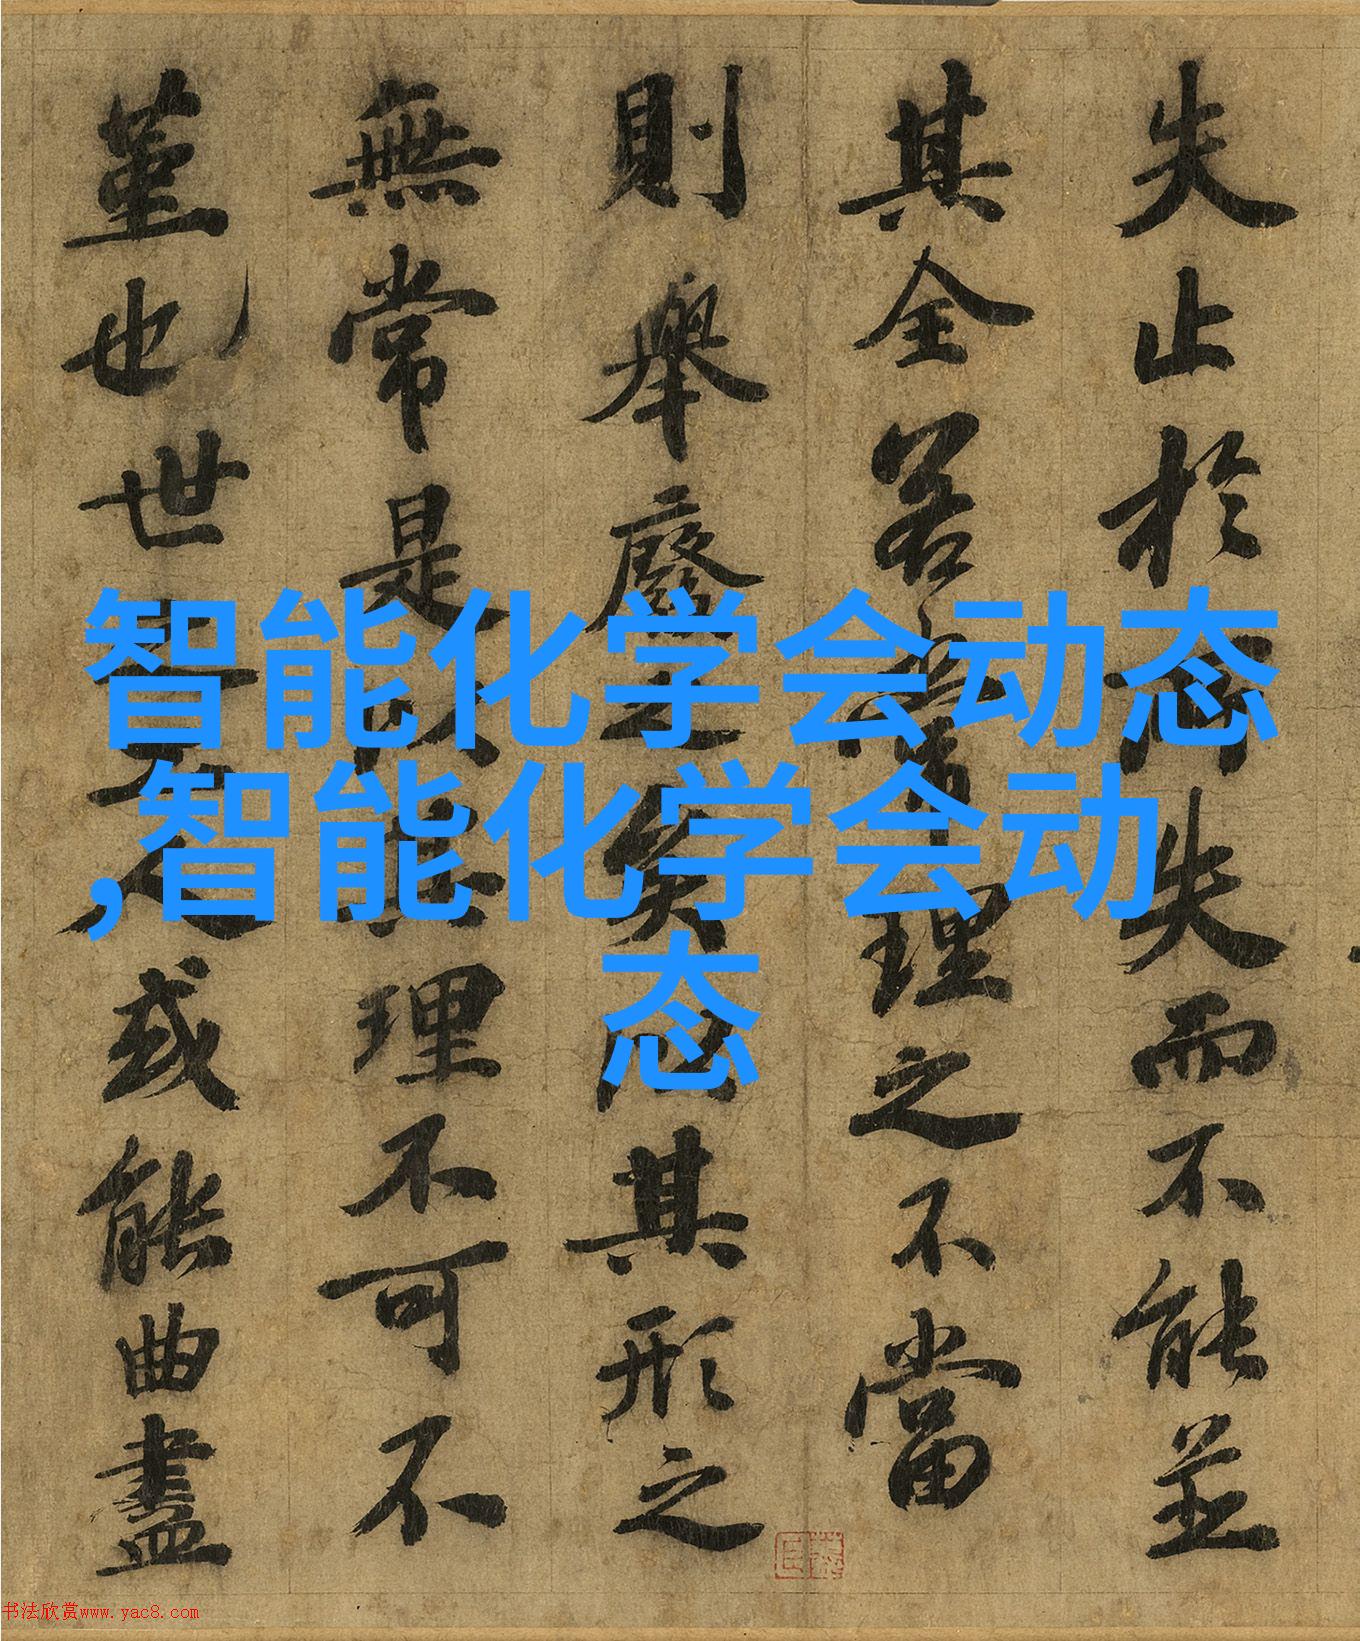 失止於所失而不能並
其全若常理之不當
則舉廢之矣以其形之
無常是以其理不可不
堇也世之工人或能曲盡
智能化学会动态
,智能化学会动
态
书法欣赏www.yac8.com